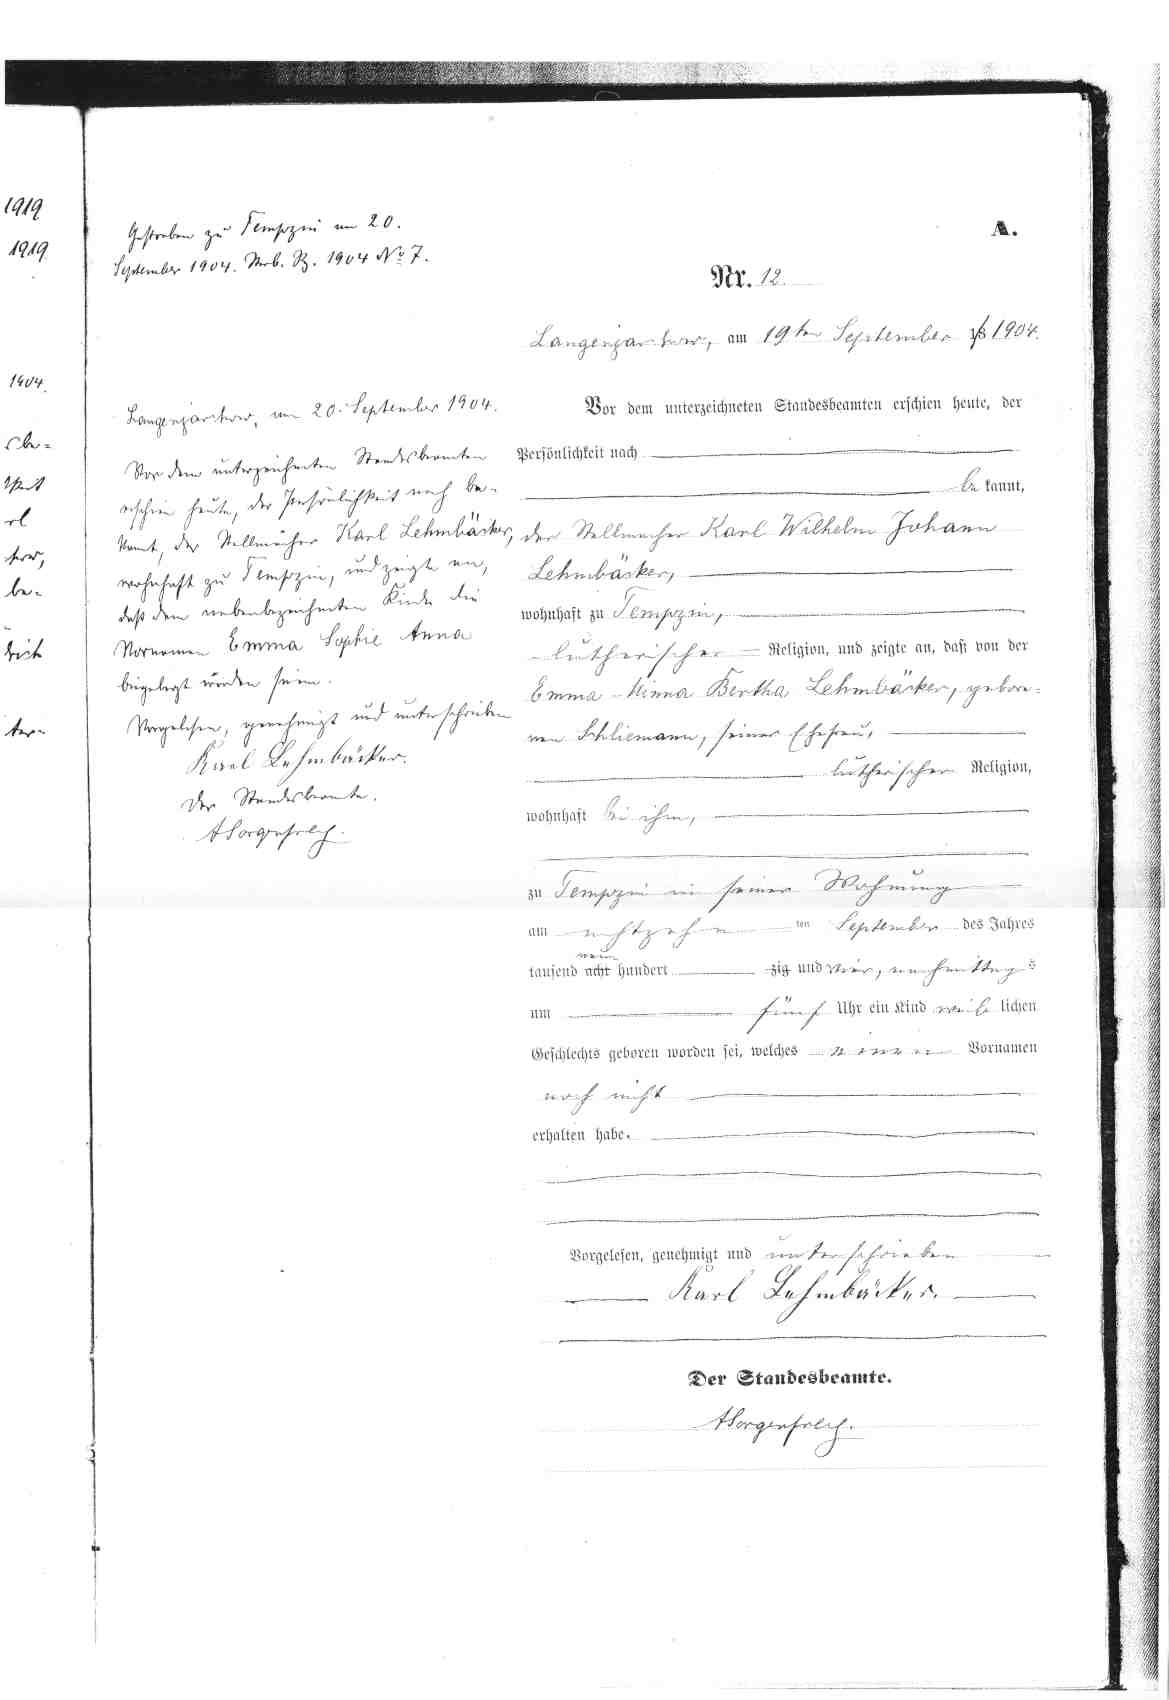 1919
1919
1904.
be-
be-
ter-
Gestorben zu Tempzin am 20.
September 1904. Strb. Rg. 1904 No 7.
Langenjarchow, am 20. September 1904.
Vor dem unterzeichneten Standesbeamten
erschien heute, der Persönlichkeit nach be-
kannt, der Stellmacher Karl Lehmbäcker,
wohnhaft zu Tempzin, und zeigte an,
daß dem nebenbezeichneten Kinde die
Vornamen Emma Sophie Anna
beigelegt worden seien.
Vorgelesen, genehmigt und unterschrieben
Karl Lehmbäcker.
Der Standesbeamte.
A.
Nr. 12.
Langenjarchow, am 19ten September 18 1904.
Vor dem unterzeichneten Standesbeamten erschien heute, der
Persönlichkeit nach
be kannt,
der Stellmacher Karl Wilhelm Johann
Lehmbäcker,
wohnhaft zu Tempzin,
lutherischer Religion, und zeigte an, daß von der
Emma Minna Bertha Lehmbäcker, gebore-
nen Schliemann, seiner Ehefrau,
lutherischer Religion,
wohnhaft bei ihm,
zu Tempzin in seiner Wohnung
am achtzehn ten September des Jahres
neun
tausend acht hundert zig und vier, nachmittags
um fünf Uhr ein Kind weib lichen
Geschlechts geboren worden sei, welches einen Vornamen
noch nicht
erhalten habe.
Vorgelesen, genehmigt und unterschrieben
Karl Lehmbäcker.
Der Standesbeamte.